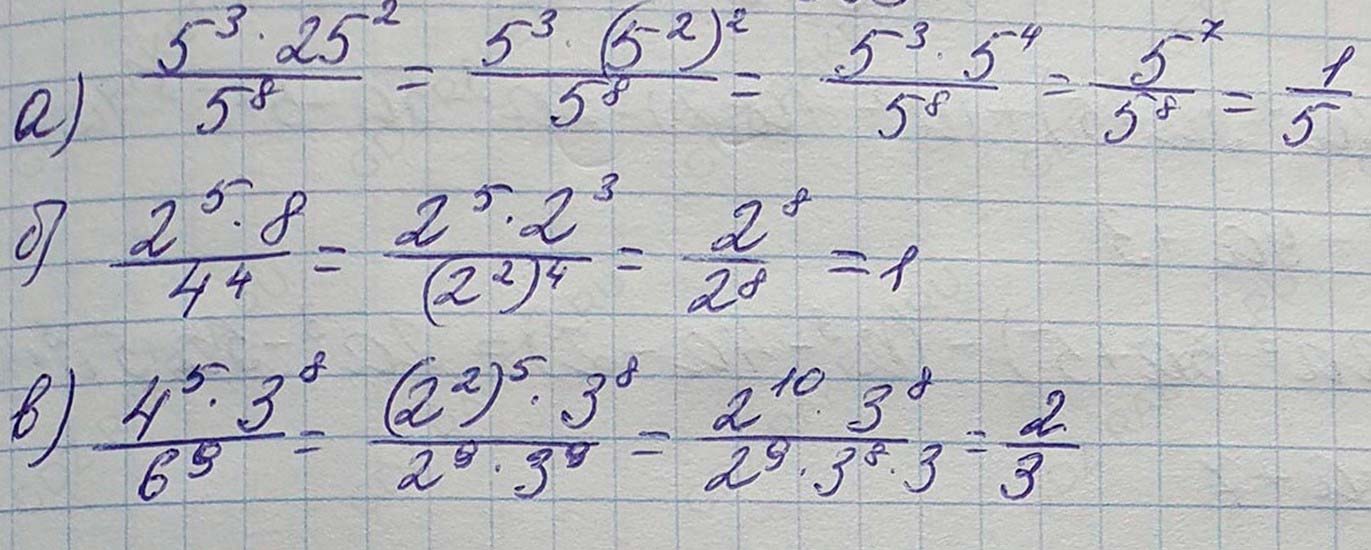 а) (5³ · 25²)/5⁸ = (5³ · (5²)²)/5⁸ = (5³ · 5⁴)/5⁸ = 5⁷/5⁸ = 1/5
б) (2⁵ · 8)/4⁴ = (2⁵ · 2³)/(2²)⁴ = 2⁸/2⁸ = 1
в) (4⁵ · 3⁸)/6⁹ = ((2²)⁵ · 3⁸)/(2⁹ · 3⁹) = (2¹⁰ · 3⁸)/(2⁹ · 3⁸ · 3) = 2/3